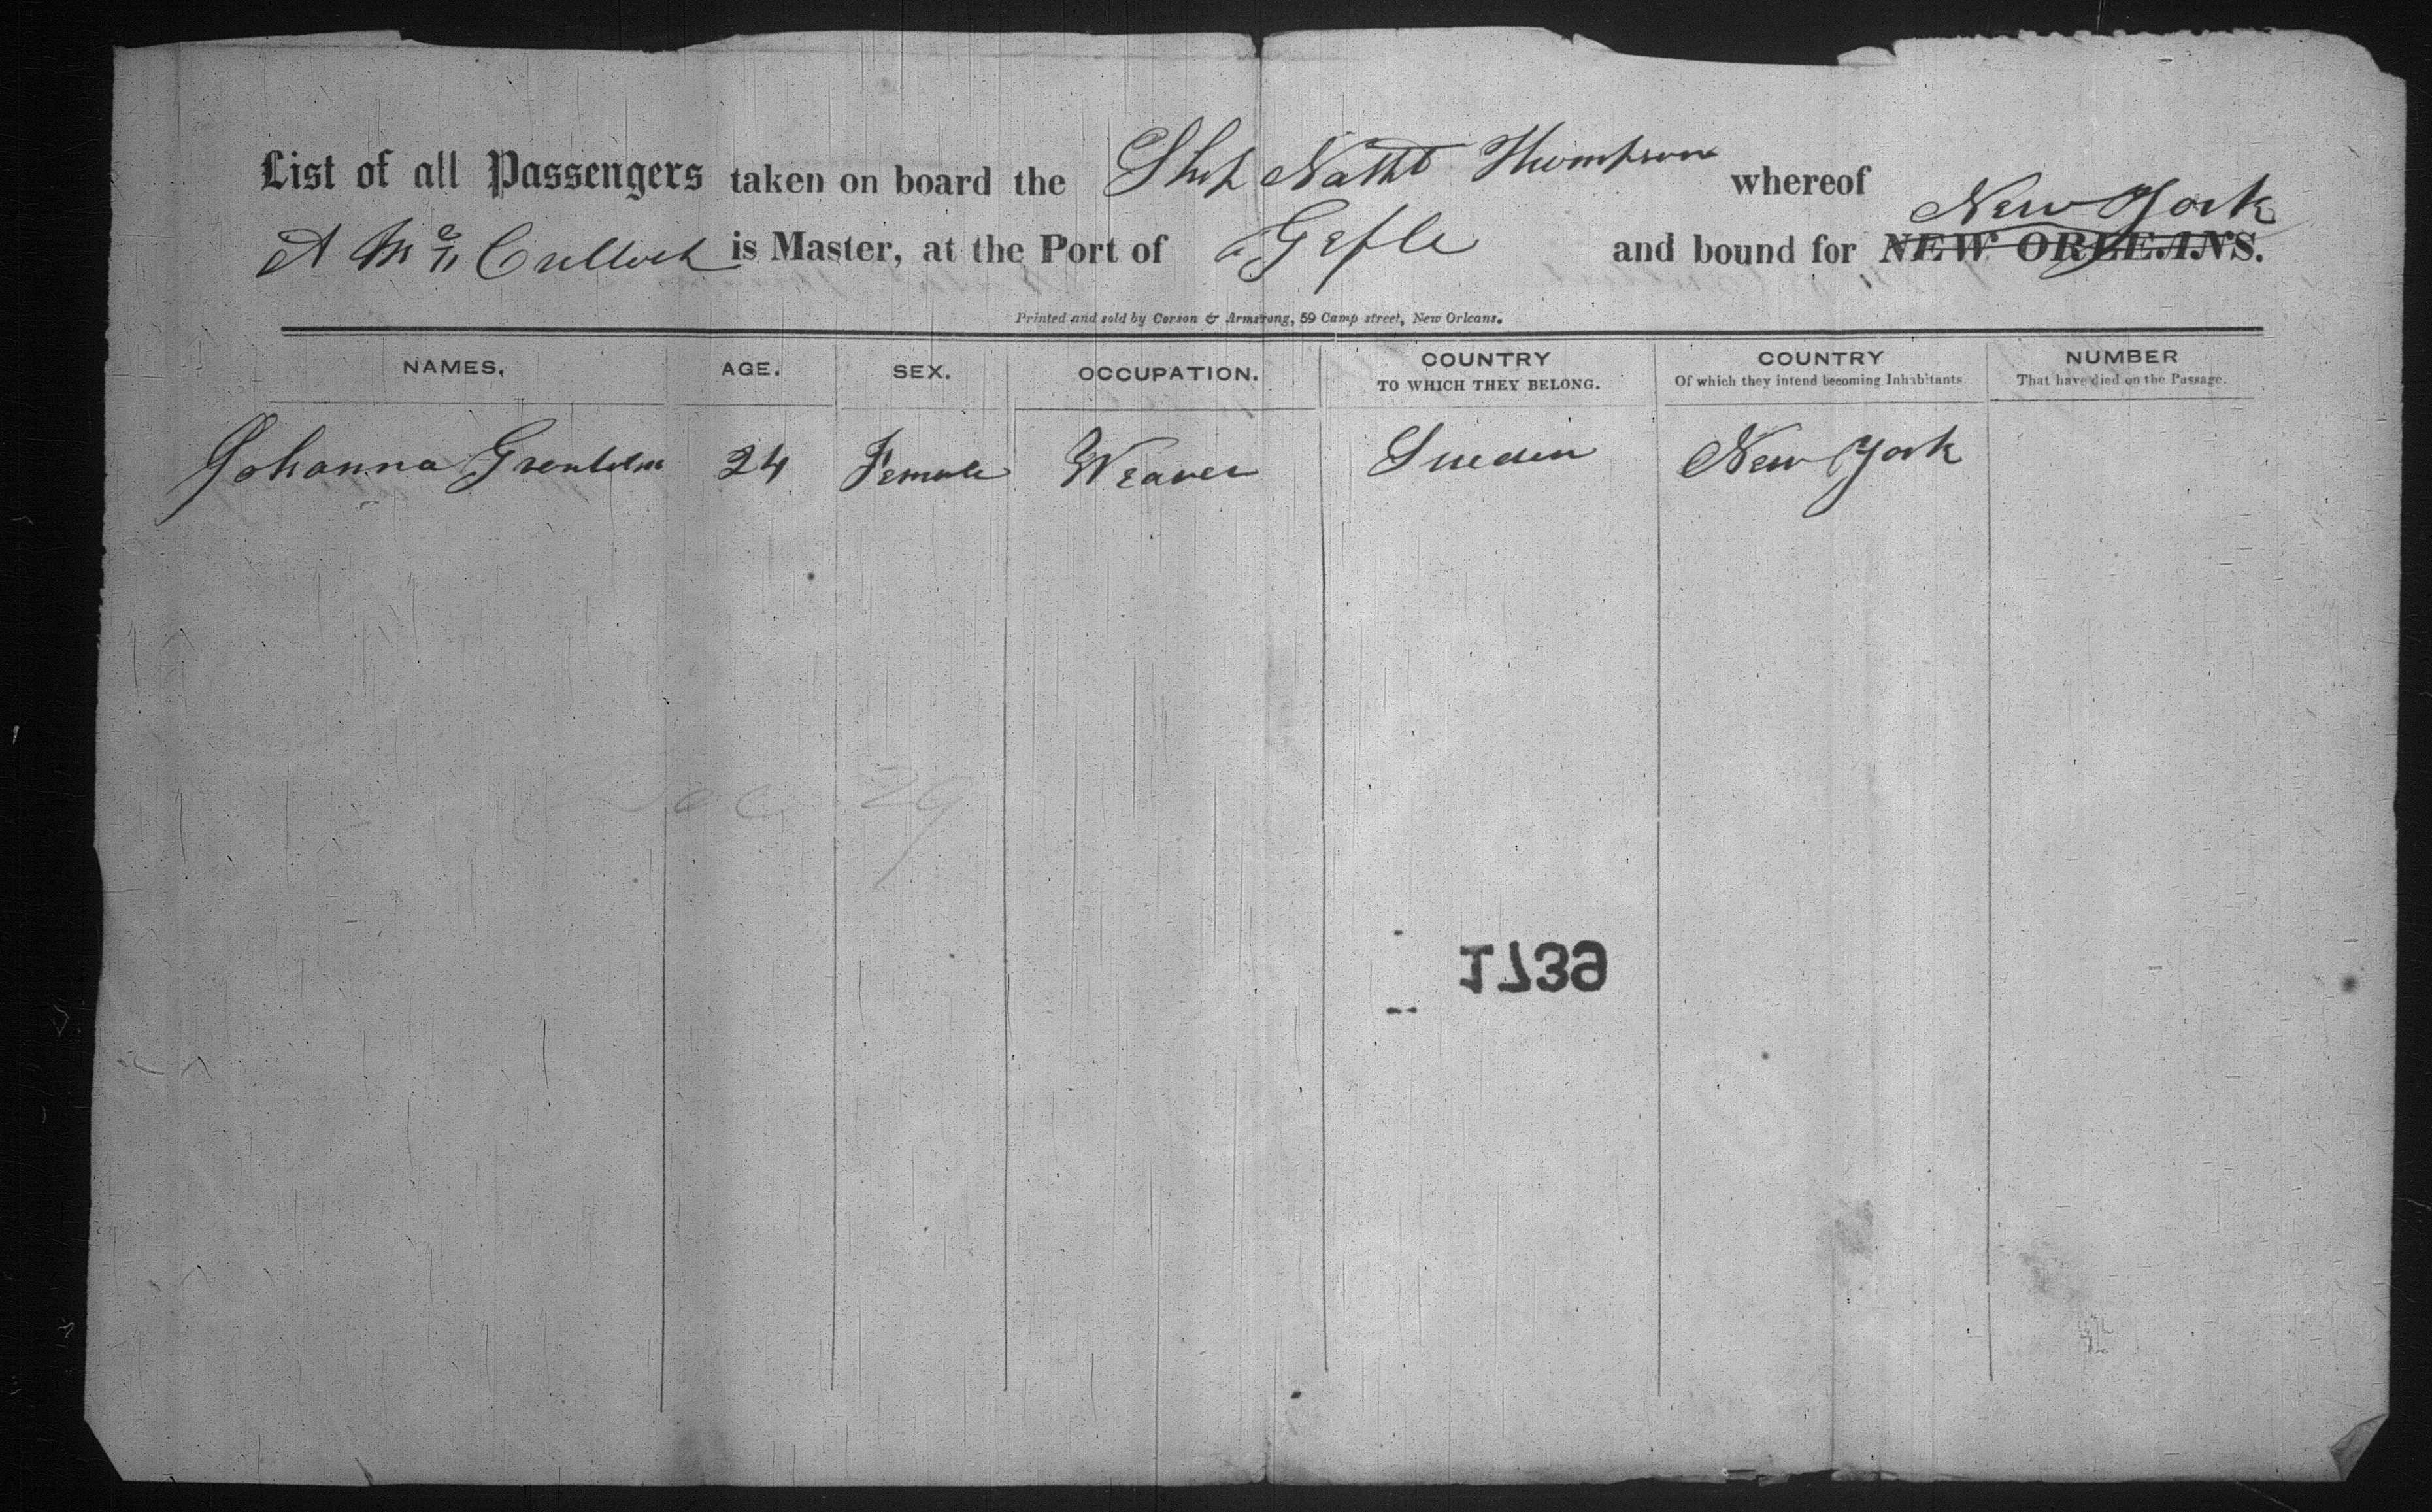 List of all Passengers taken on board the Ship Nathl Thompson whereof
A Mc Culloch is Master, at the Port of Gefle and bound for New York NEW ORLEANS.
Printed and sold by Corson & Armstrong, 59 Camp street, New Orleans.
NAMES. AGE. SEX. OCCUPATION. COUNTRY TO WHICH THEY BELONG. COUNTRY Of which they intend becoming Inhabitants NUMBER That have died on the Passage.
Johanna Grenholm 24 Female Weaver Sweden New York
Dec 29
1739